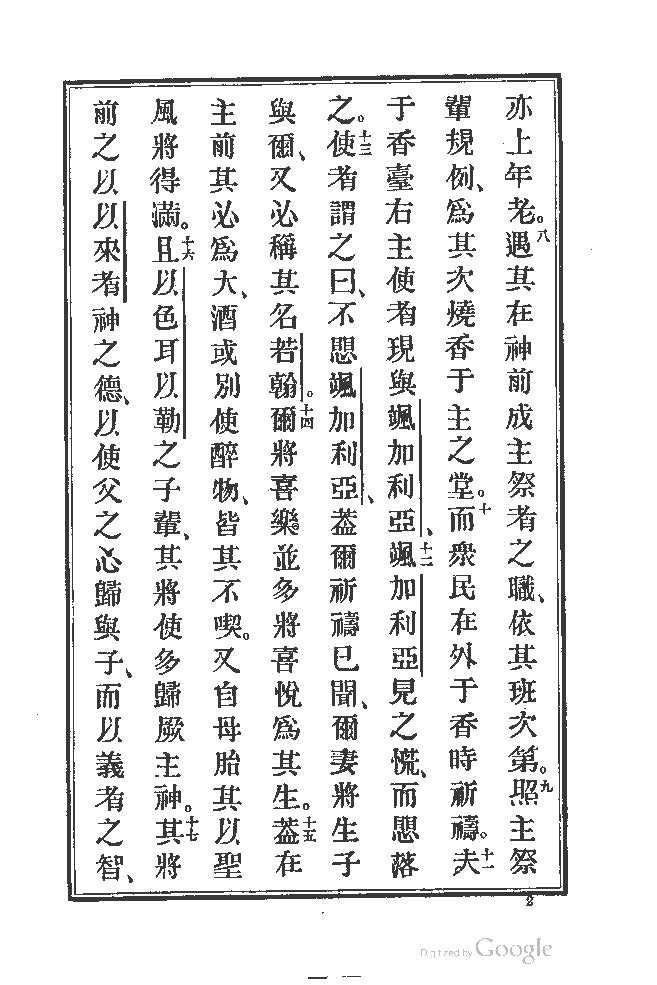 亦上年老。八遇其在神前成主祭者之職、依其班次第。九照主祭
輩規例、為其次燒香于主之堂。十而衆民在外于香時祈禱。十一夫
于香臺右主使者現與颯加利亞、十二颯加利亞見之慌、而懼落
之。十三使者謂之曰、不懼颯加利亞、葢爾祈禱已聞、爾妻將生子
與爾、又必稱其名若翰。十四爾將喜樂並多將喜悅為其生。十五葢在
主前其必為大、酒或別使醉物、皆其不喫。又自母胎其以聖
風將得滿。十六且以色耳以勒之子輩、其將使多歸厥主神。十七其將
前之以以來者神之德、以使父之心歸與子、而以義者之智、
2
Digitized by Google
一一